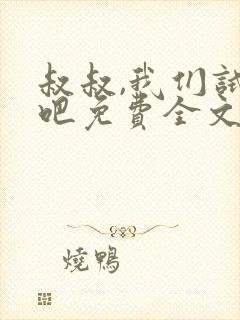 叔叔,我们試
吧免費全文
燒鴨